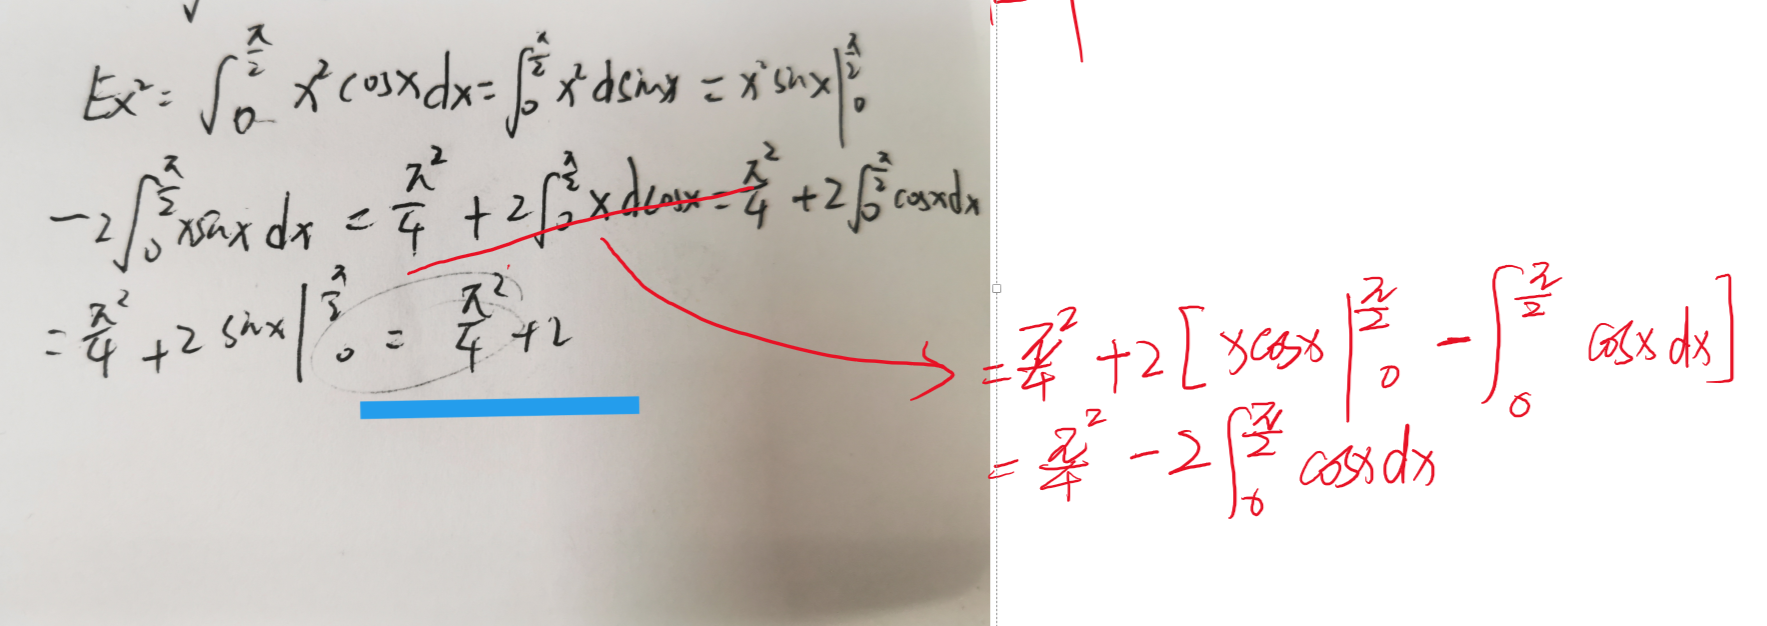 Ex² = ∫₀^{π/2} x² cosx dx = ∫₀^{π/2} x² dsinx = x² sinx |₀^{π/2}
- 2∫₀^{π/2} x sinx dx = π²/4 + 2∫₀^{π/2} x dcosx = π²/4 + 2∫₀^{π/2} cosx dx
= π²/4 + 2 sinx |₀^{π/2} = π²/4 + 2
= π²/4 + 2[x cosx |₀^{π/2} - ∫₀^{π/2} cosx dx]
= π²/4 - 2∫₀^{π/2} cosx dx